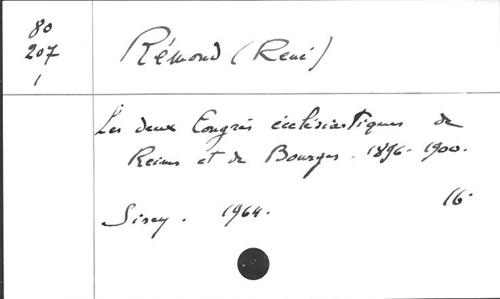 80
207
1
Rémond (René)
Les deux Congrès écclésiastiques de
Reims et de Bourges. 1896-1900.
Sirey. 1964. 16.